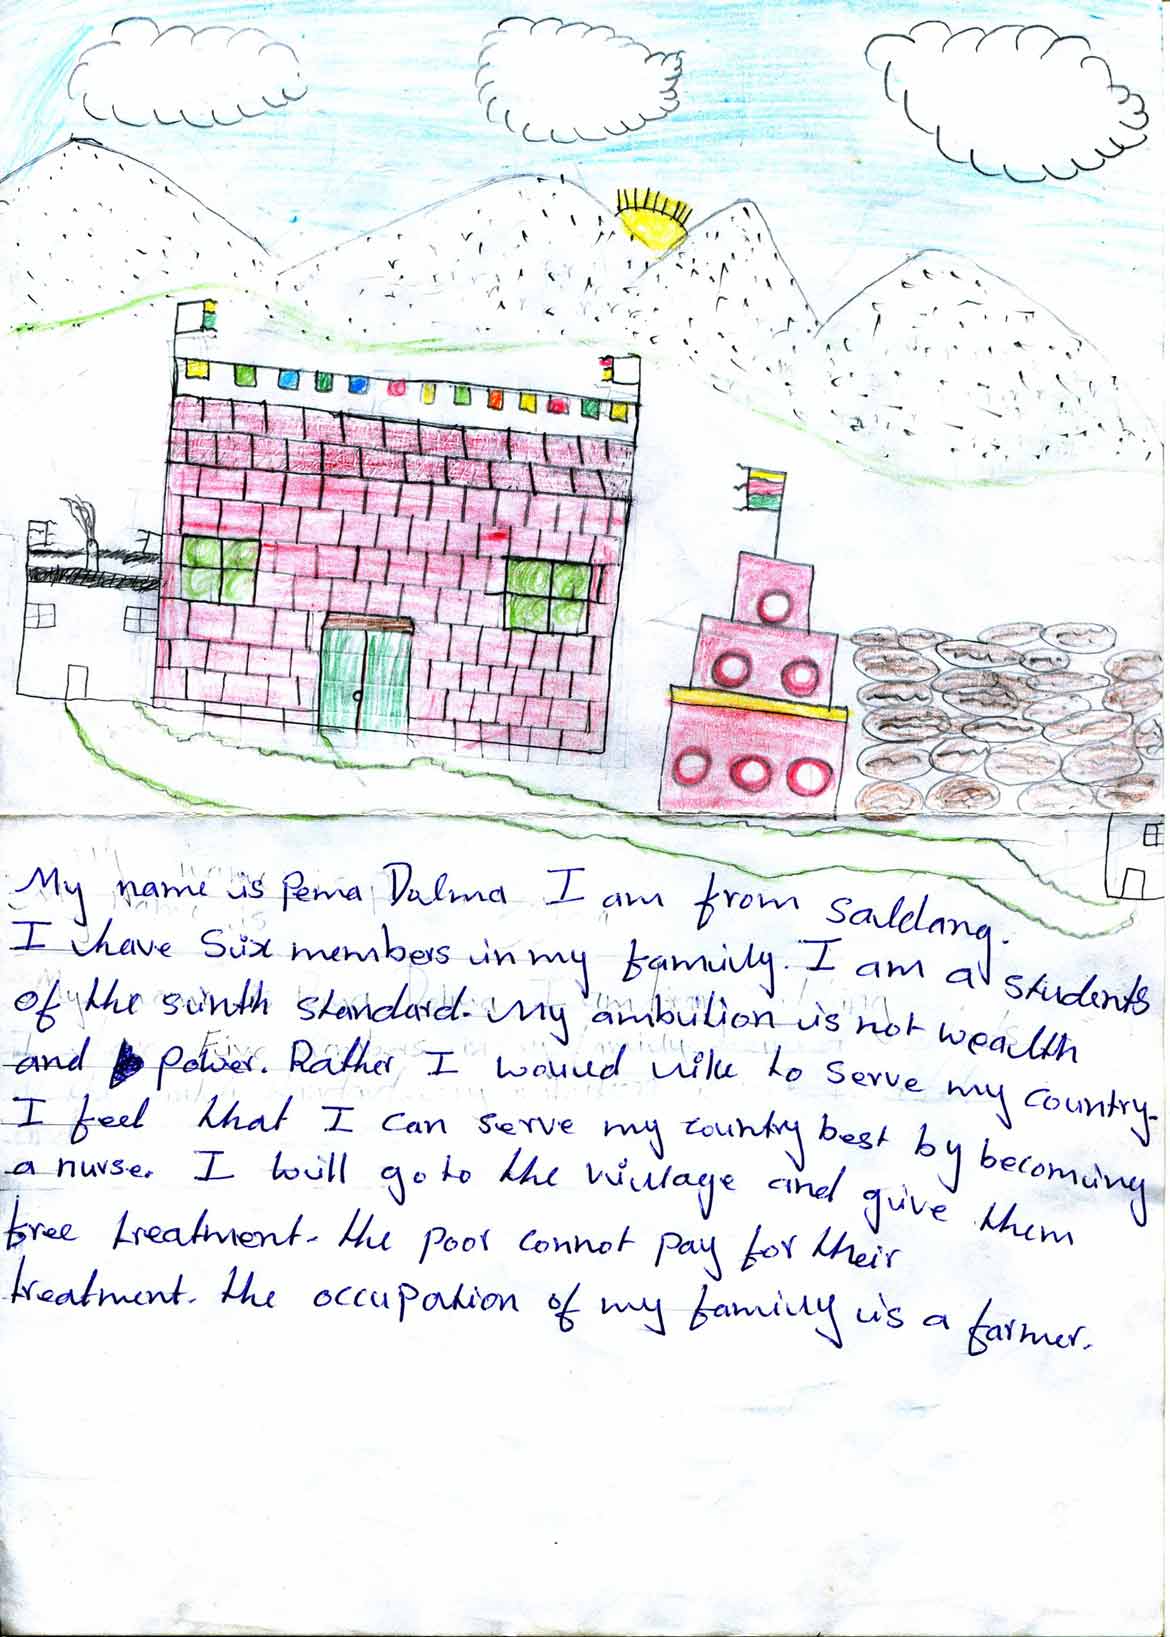 My name is Pema Dalma I am from Saldang.
I have Six members in my family. I am a students
of the sinth standard. My ambition is not wealth
and power. Rather I would like to serve my country.
I feel that I can serve my country best by becoming
a nurse. I will go to the village and give them
free treatment. the poor connot pay for their
treatment. the occupation of my family is a farmer.